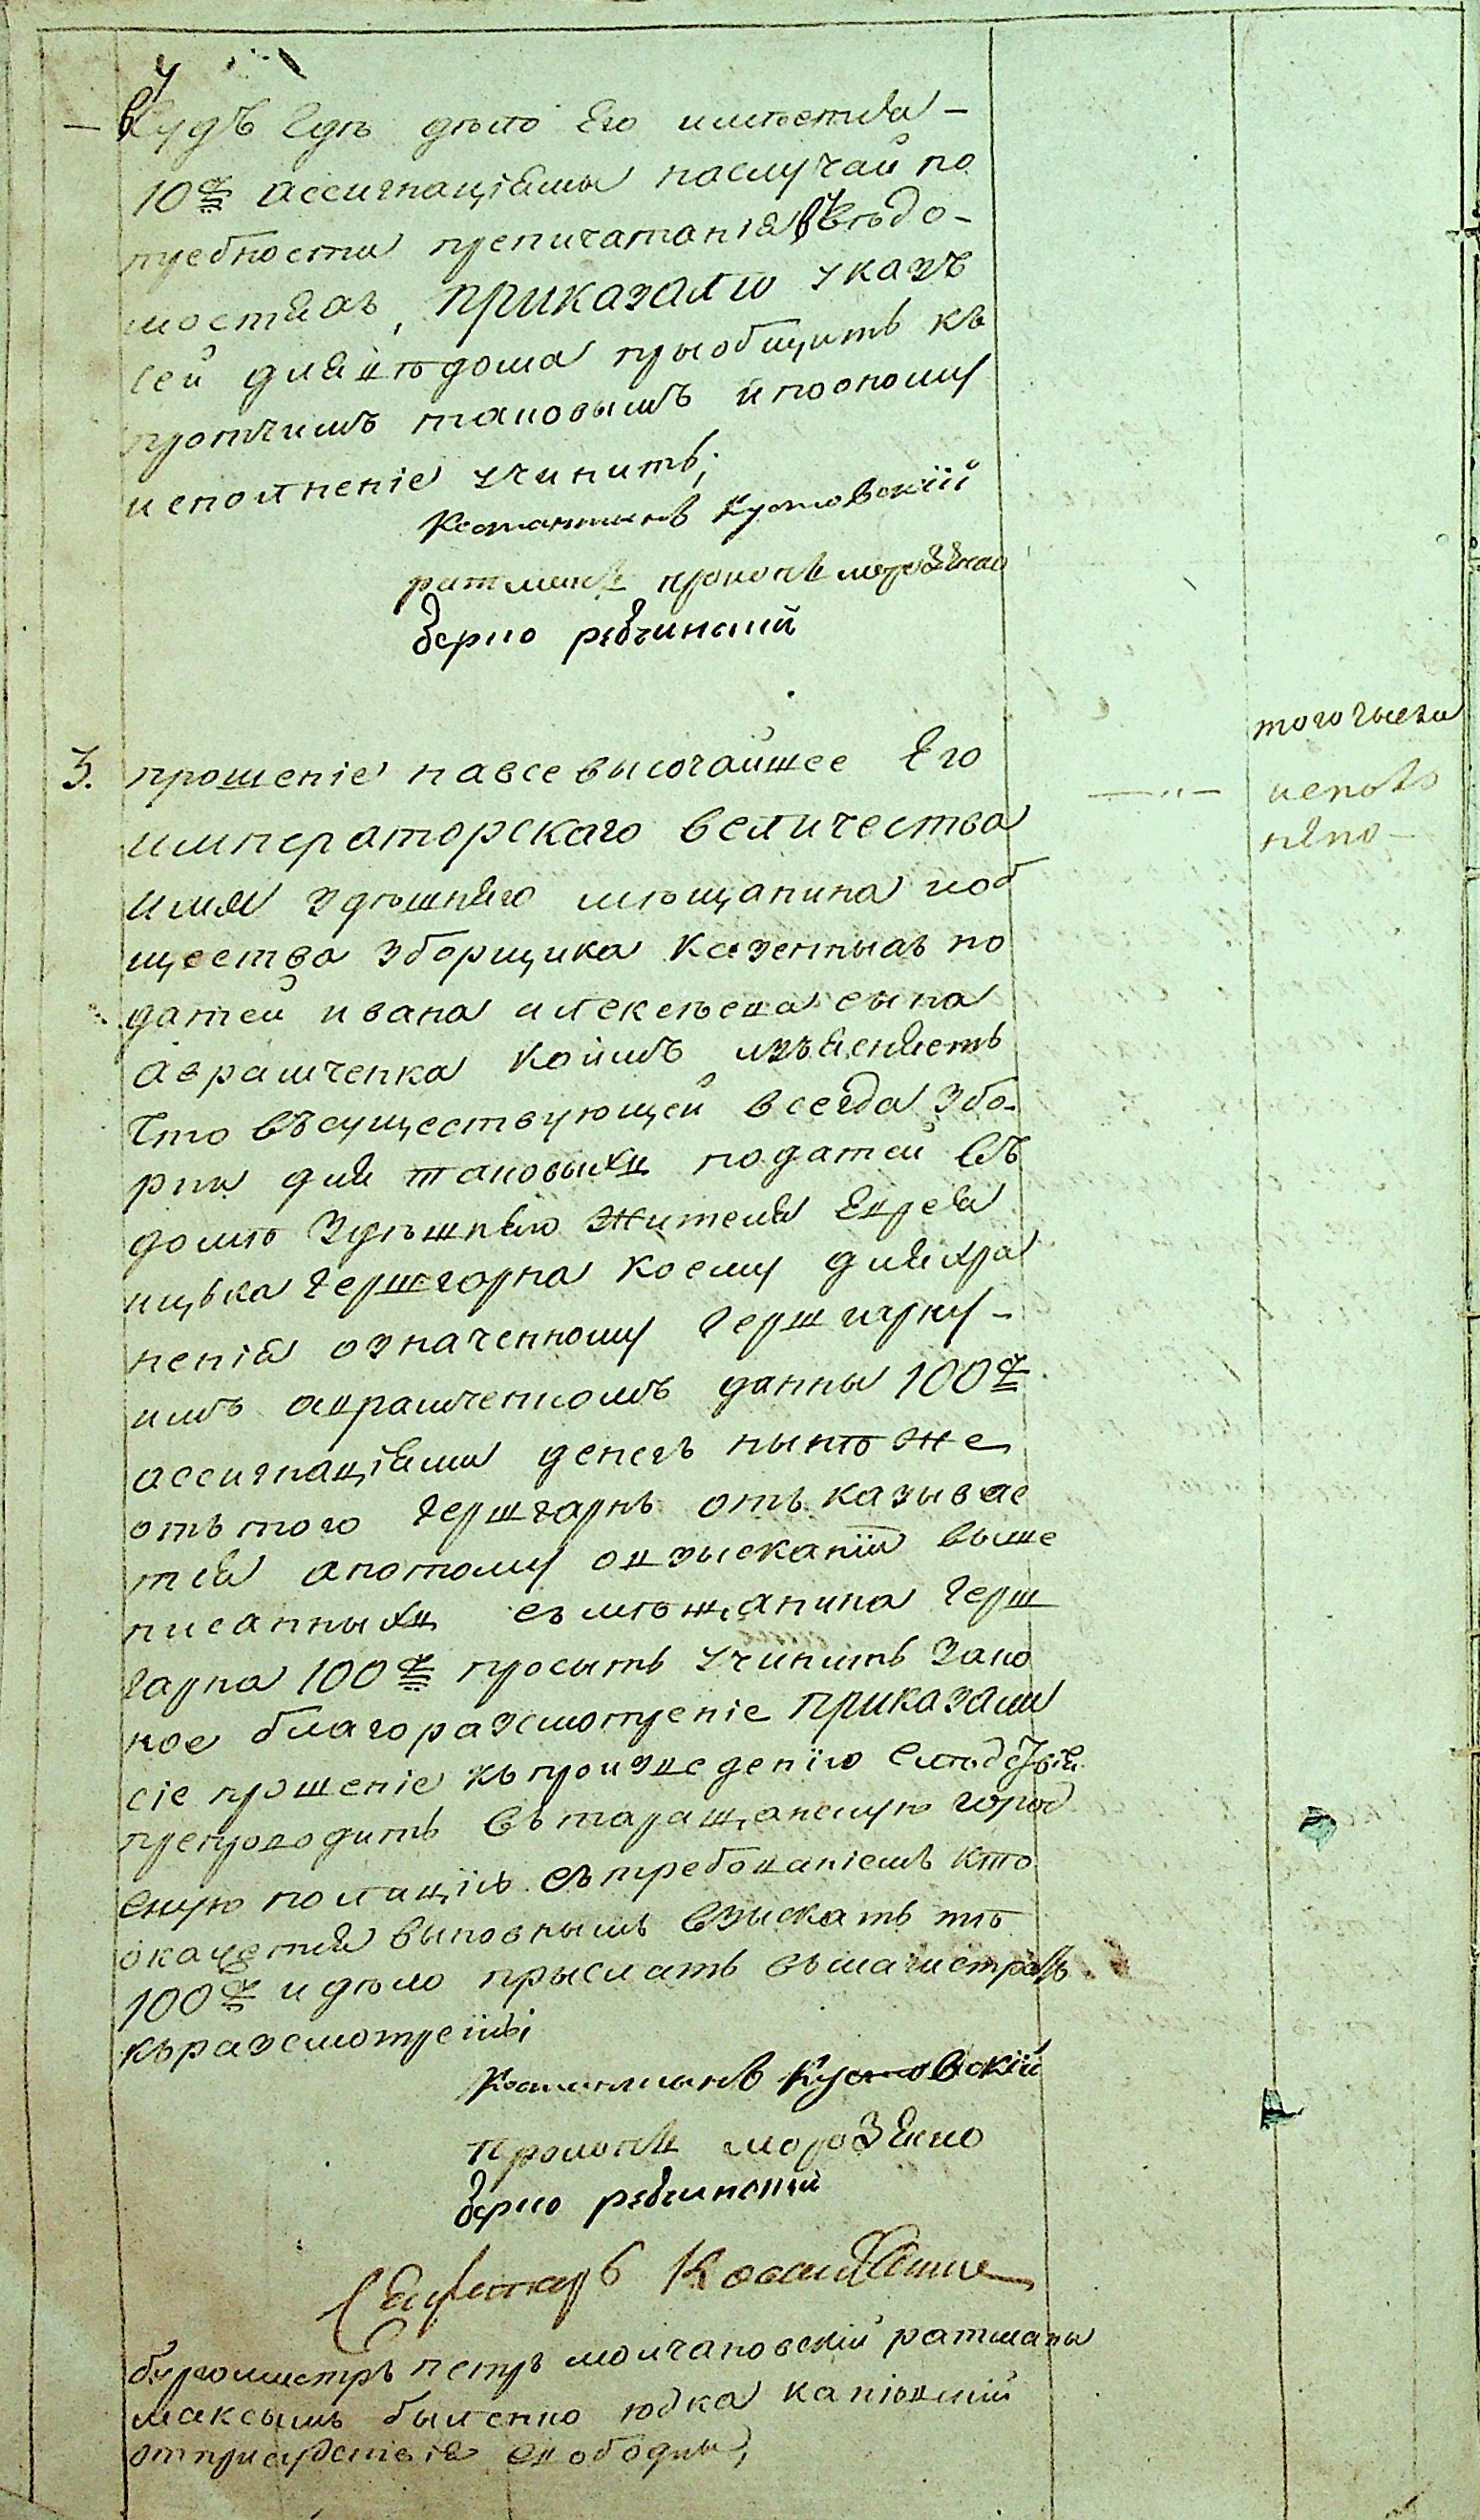 — въ Судъ Гдѣ дѣло Его имѣется —
10 р ассигнаціями наслучай по
требности препичатанія въ вѣдо-
мостяхъ, приказали указъ
сей для вѣдома пріобщить къ
протчимъ таковымъ и поономму
исполненіе учинить;
Костантинъ Кустовскій
ратманъ прокопъ морозенко
берко ребчинский
3. прошеніе навсевысочайшее Его
императорскаго величества
имя здѣшняго мѣщанина иоб
щества зборщика казенныхъ по
датей ивана алексѣева сына
аврамченка коимъ изъясняетъ
что въсуществующей всегда збо-
рни для таковыхъ податей въ
домѣ здѣшняго жителя Еврея
ицька Гершгорна коему для хра
ненія означенному Гершгарну —
имъ аврамченкомъ данны 100 р
ассигнаціями денегъ нынѣ же
отъ того Гершгарнъ отъказывае
тся апотому овзысканіи выше
писанныхъ съ мѣщанина Герш
гарна 100 р просить учинить зако
ное благоразсмотреніе приказали
сіе прошеніе къ произведенію слѣдствія
препроводить въ таращанскую город
скую полицію съ требованіемъ кто
окажется виновнымъ взыскать тѣ
100 р и дѣло прыслать въ магистратъ
къ разсмотренію
того числа
исполъ
нено —
Костантинъ Кустовскій
Прокопъ морозенко
берко ребчинский
Секретарь
бургомистръ петръ молчановскій ратманы
максымъ быленко юдка каніовский
отприсудствія свободны,